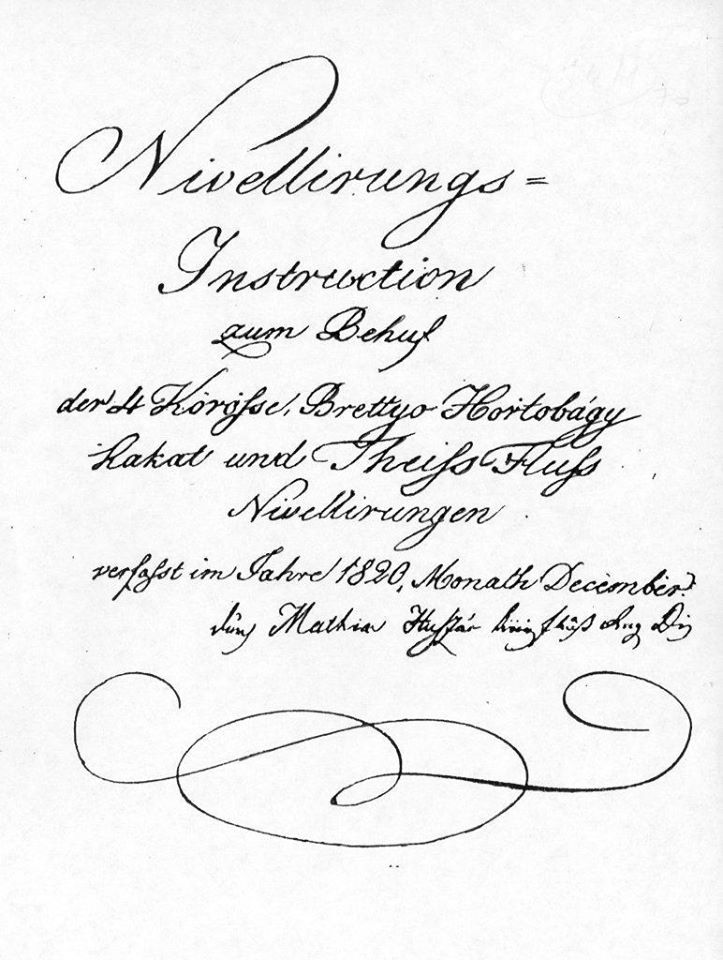 Nivellirungs=
Instruction
zum Behuf
der 4 Körösse, Brettyo Hortobágy
Lakat und Theiss Fluss
Nivellirungen
verfasst im Jahre 1820, Monath December.
durch Mathia Huszár